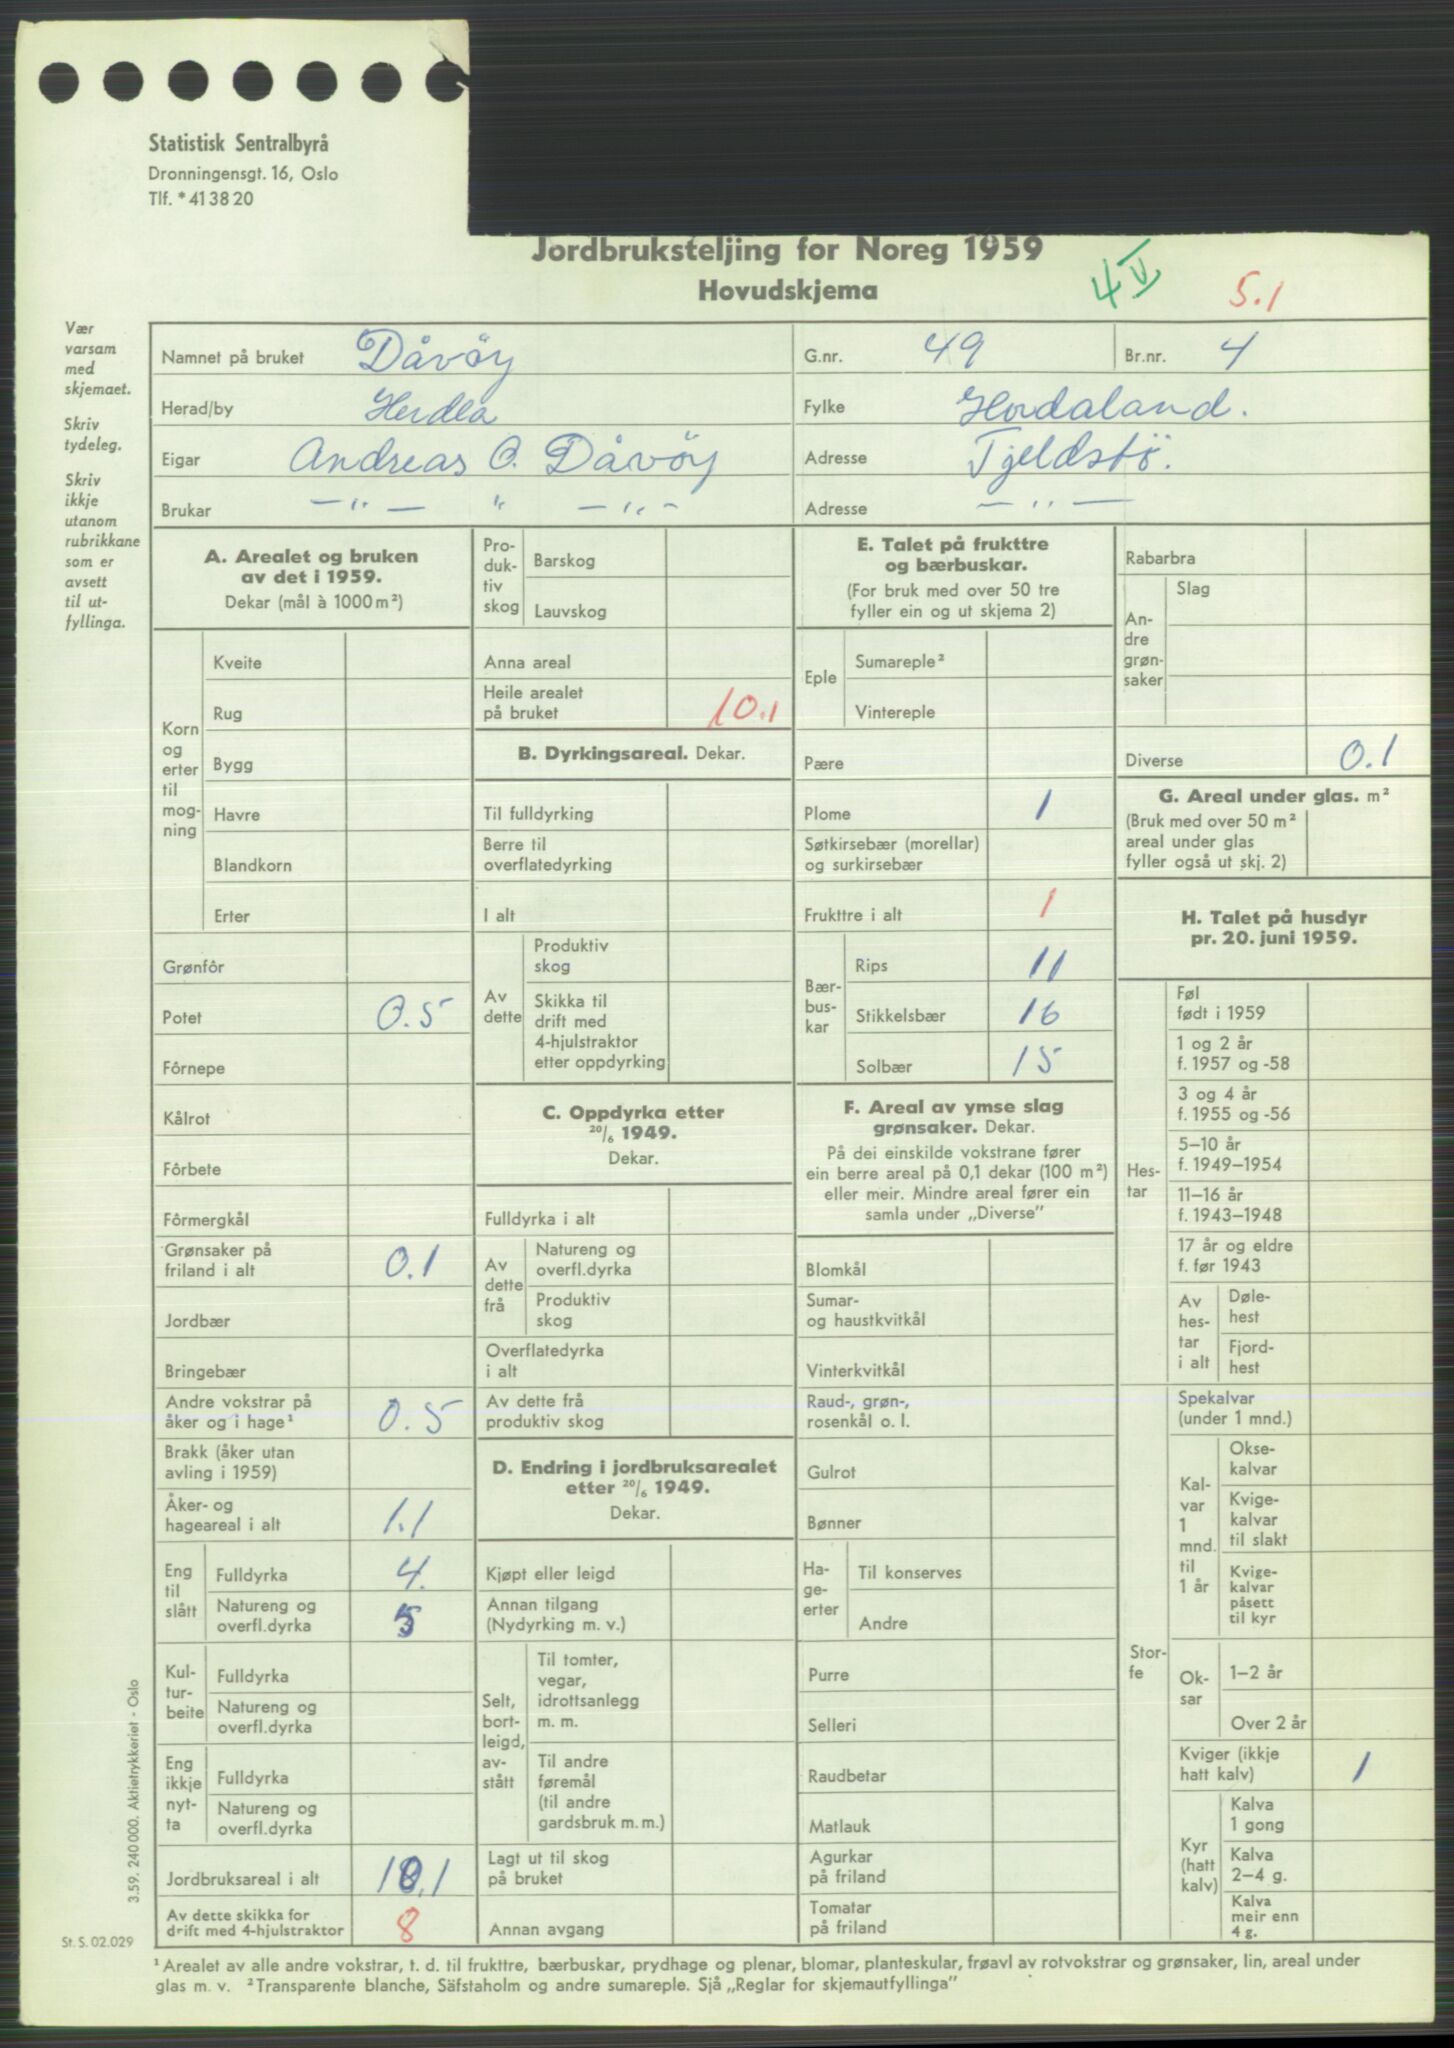 Statistisk Sentralbyrå
Dronningensgt. 16, Oslo
Tlf. * 41 38 20
Jordbruksteljing for Noreg 1959
Hovudskjema
4 V
5.1
Vær
varsam
med
skjemaet.
Skriv
tydeleg.
Skriv
ikkje
utanom
rubrikkane
som er
avsett
til ut-
fyllinga.
Namnet på bruket Dåvöy G.nr. 49 Br.nr. 4
Herad/by Herdla Fylke Hordaland.
Eigar Andreas O. Dåvöy Adresse Tjeldstö.
Brukar — „ — „ — „ — Adresse — „ —
A. Arealet og bruken
av det i 1959.
Dekar (mål à 1000 m²)
Korn
og
erter
til
mog-
ning
Kveite
Rug
Bygg
Havre
Blandkorn
Erter
Grønfôr
Potet 0.5
Fôrnepe
Kålrot
Fôrbete
Fôrmergkål
Grønsaker på
friland i alt 0.1
Jordbær
Bringebær
Andre vokstrar på
åker og i hage¹ 0.5
Brakk (åker utan
avling i 1959)
Åker- og
hageareal i alt 1.1
Eng
til
slått
Fulldyrka 4.
Natureng og
overfl.dyrka 5
Kul-
tur-
beite
Fulldyrka
Natureng og
overfl.dyrka
Eng
ikkje
nyt-
ta
Fulldyrka
Natureng og
overfl.dyrka
Jordbruksareal i alt 10.1
Av dette skikka for
drift med 4-hjulstraktor 8
Pro-
duk-
tiv
skog
Barskog
Lauvskog
Anna areal
Heile arealet
på bruket 10.1
B. Dyrkingsareal. Dekar.
Til fulldyrking
Berre til
overflatedyrking
I alt
Av
dette
Produktiv
skog
Skikka til
drift med
4-hjulstraktor
etter oppdyrking
C. Oppdyrka etter
20/6 1949.
Dekar.
Fulldyrka i alt
Av
dette
frå
Natureng og
overfl.dyrka
Produktiv
skog
Overflatedyrka
i alt
Av dette frå
produktiv skog
D. Endring i jordbruksarealet
etter 20/6 1949.
Dekar.
Kjøpt eller leigd
Annan tilgang
(Nydyrking m. v.)
Selt,
bort-
leigd,
av-
stått
Til tomter,
vegar,
idrottsanlegg
m. m.
Til andre
føremål
(til andre
gardsbruk m. m.)
Lagt ut til skog
på bruket
Annan avgang
E. Talet på frukttre
og bærbuskar.
(For bruk med over 50 tre
fyller ein og ut skjema 2)
Eple
Sumareple²
Vintereple
Pære
Plome 1
Søtkirsebær (morellar)
og surkirsebær
Frukttre i alt 1
Bær-
bus-
kar
Rips 11
Stikkelsbær 16
Solbær 15
F. Areal av ymse slag
grønsaker. Dekar.
På dei einskilde vokstrane fører
ein berre areal på 0,1 dekar (100 m²)
eller meir. Mindre areal fører ein
samla under „Diverse”
Blomkål
Sumar-
og haustkvitkål
Vinterkvitkål
Raud-, grøn-,
rosenkål o. l.
Gulrot
Bønner
Ha-
ge-
erter
Til konserves
Andre
Purre
Selleri
Raudbetar
Matlauk
Agurkar
på friland
Tomatar
på friland
Rabarbra
An-
dre
grøn-
saker
Slag
Diverse 0.1
G. Areal under glas. m²
(Bruk med over 50 m²
areal under glas
fyller også ut skj. 2)
H. Talet på husdyr
pr. 20. juni 1959.
Hes-
tar
Føl
født i 1959
1 og 2 år
f. 1957 og -58
3 og 4 år
f. 1955 og -56
5–10 år
f. 1949–1954
11–16 år
f. 1943–1948
17 år og eldre
f. før 1943
Av
hes-
tar
i alt
Døle-
hest
Fjord-
hest
Stor-
fe
Spekalvar
(under 1 mnd.)
Kal-
var
1
mnd.
til
1 år
Okse-
kalvar
Kvige-
kalvar
til slakt
Kvige-
kalvar
påsett
til kyr
Ok-
sar
1–2 år
Over 2 år
Kviger (ikkje
hatt kalv) 1
Kyr
(hatt
kalv)
Kalva
1 gong
Kalva
2–4 g.
Kalva
meir enn
4 g.
3.59. 240 000. Aktietrykkeriet - Oslo
St. S. 02.029
¹ Arealet av alle andre vokstrar, t. d. til frukttre, bærbuskar, prydhage og plenar, blomar, planteskular, frøavl av rotvokstrar og grønsaker, lin, areal under
glas m. v. ² Transparente blanche, Säfstaholm og andre sumareple. Sjå „Reglar for skjemautfyllinga”